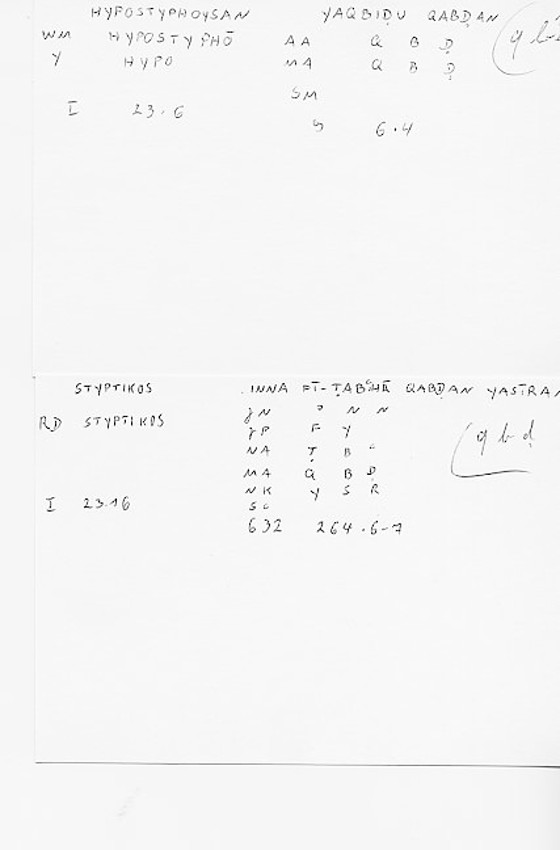 HYPOSTYPHOYSAN YAQBIḌU QABḌAN
WM HYPOSTYPHŌ AA Q B Ḍ
Y HYPO MA Q B Ḍ
SM
I 23.6
6.4
STYPTIKOS INNA FĪ-ṬABʿIHĪ QABḌAN
RD STYPTIKOS
N N
F Y
NA Ṭ B ʿ
q b ḍ
MA Q B Ḍ
NK Y S R
I 23.16
632 264.6-7